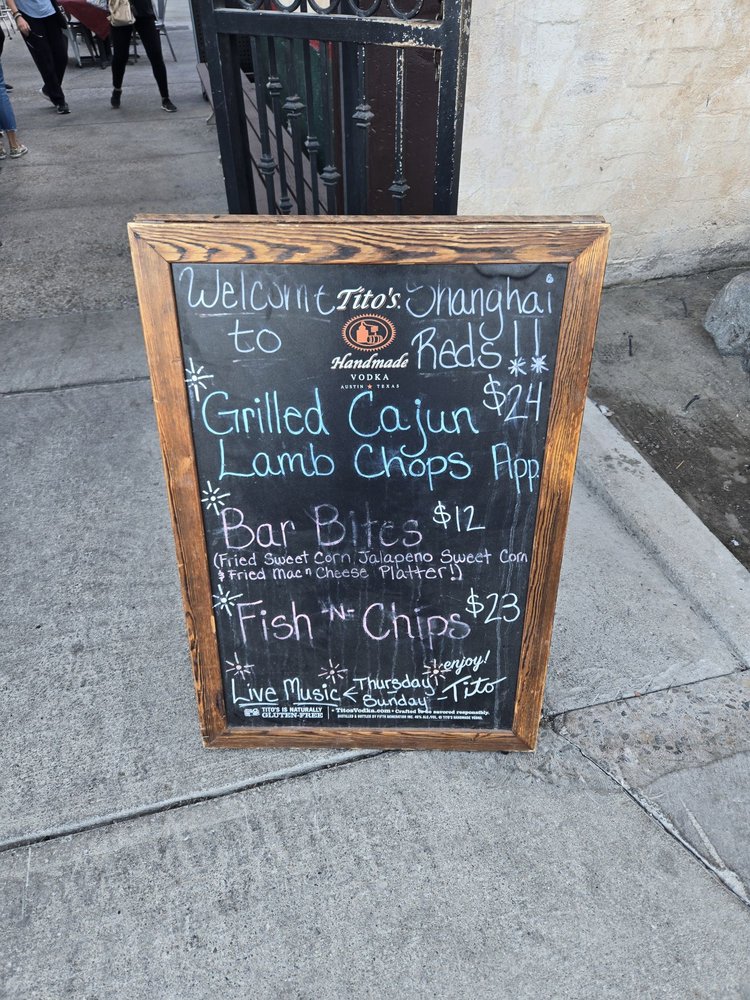 Welcome Tito's Shanghai
to Handmade Reds!!
VODKA
AUSTIN ★ TEXAS
Grilled Cajun $24
Lamb Chops App.
Bar Bites $12
(Fried Sweet Corn, Jalapeno Sweet Corn
& Fried Mac n Cheese Platter!!)
Fish "N" Chips $23
enjoy!
Live Music < Thursday
Sunday -Tito
TITO'S IS NATURALLY GLUTEN-FREE
TitosVodka.com • Crafted to be savored responsibly.
DISTILLED & BOTTLED BY FIFTH GENERATION INC. 40% ALC./VOL. © TITO'S HANDMADE VODKA.